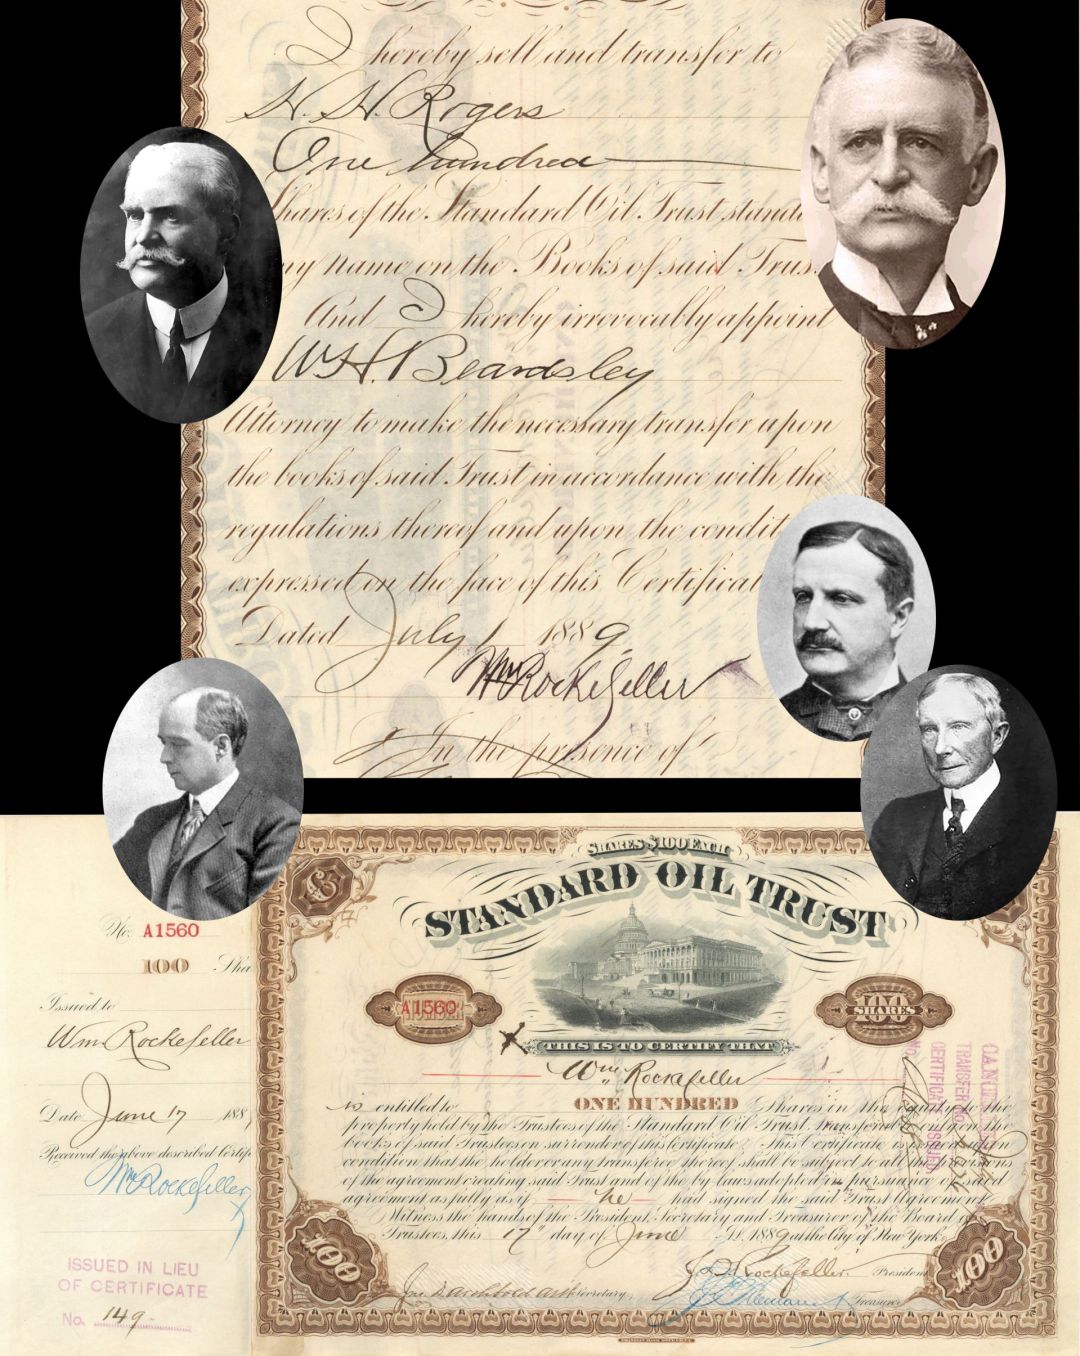 I hereby sell and transfer to
H. H. Rogers
One hundred
Shares of the Standard Oil Trust
my name on the Books of said
And I hereby irrevocably appoint
W. H. Beardsley
Attorney to make the necessary transfer upon
the books of said Trust in accordance with the
regulations thereof and upon the
expressed on the face of this
Dated July 1 1889
Wm Rockefeller
In the presence of
SHARES $100 EACH
STANDARD OIL TRUST
No. A1560
100
A1560
100 SHARES
Issued to
Wm Rockefeller
THIS IS TO CERTIFY THAT
Wm Rockefeller
is entitled to ONE HUNDRED Shares in the equity to the
property held by the Trustees of the Standard Oil Trust, transferable only on the
books of said Trustees on surrender of this Certificate. This Certificate is issued upon
condition that the holder or any transferee thereof shall be subject to all the provisions
of the agreement creating said Trust and of the by-laws adopted in pursuance of said
agreement as fully as if he had signed the said Trust Agreement.
Witness the hands of the President, Secretary and Treasurer of the Board of
Trustees, this 17th day of June A.D. 1889 at the City of New York.
Date June 17 188
Received the above described
Wm Rockefeller
CERTIFICATE ISSUED
TRANSFER
No.
ISSUED IN LIEU
OF CERTIFICATE
No. 149
100
J D Rockefeller President
Secretary
Treasurer
100